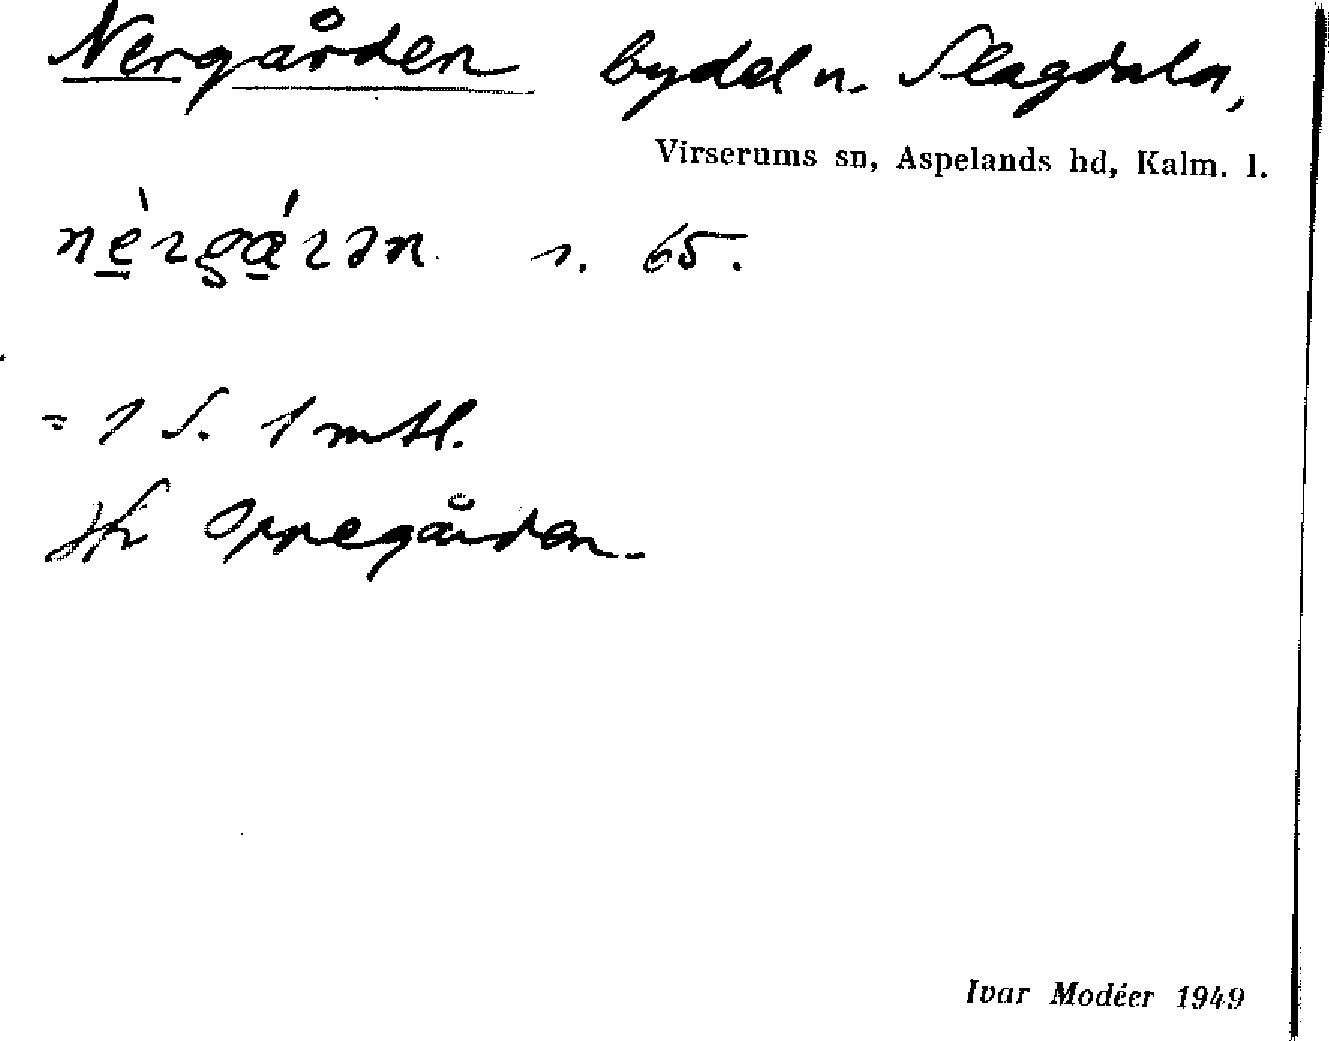 Nergården bydel n. Slagdala,
Virserums sn, Aspelands hd, Kalm. l.
s. 65.
= 1 s. 1 mtl.
Jfr Oppegården.
Ivar Modéer 1949